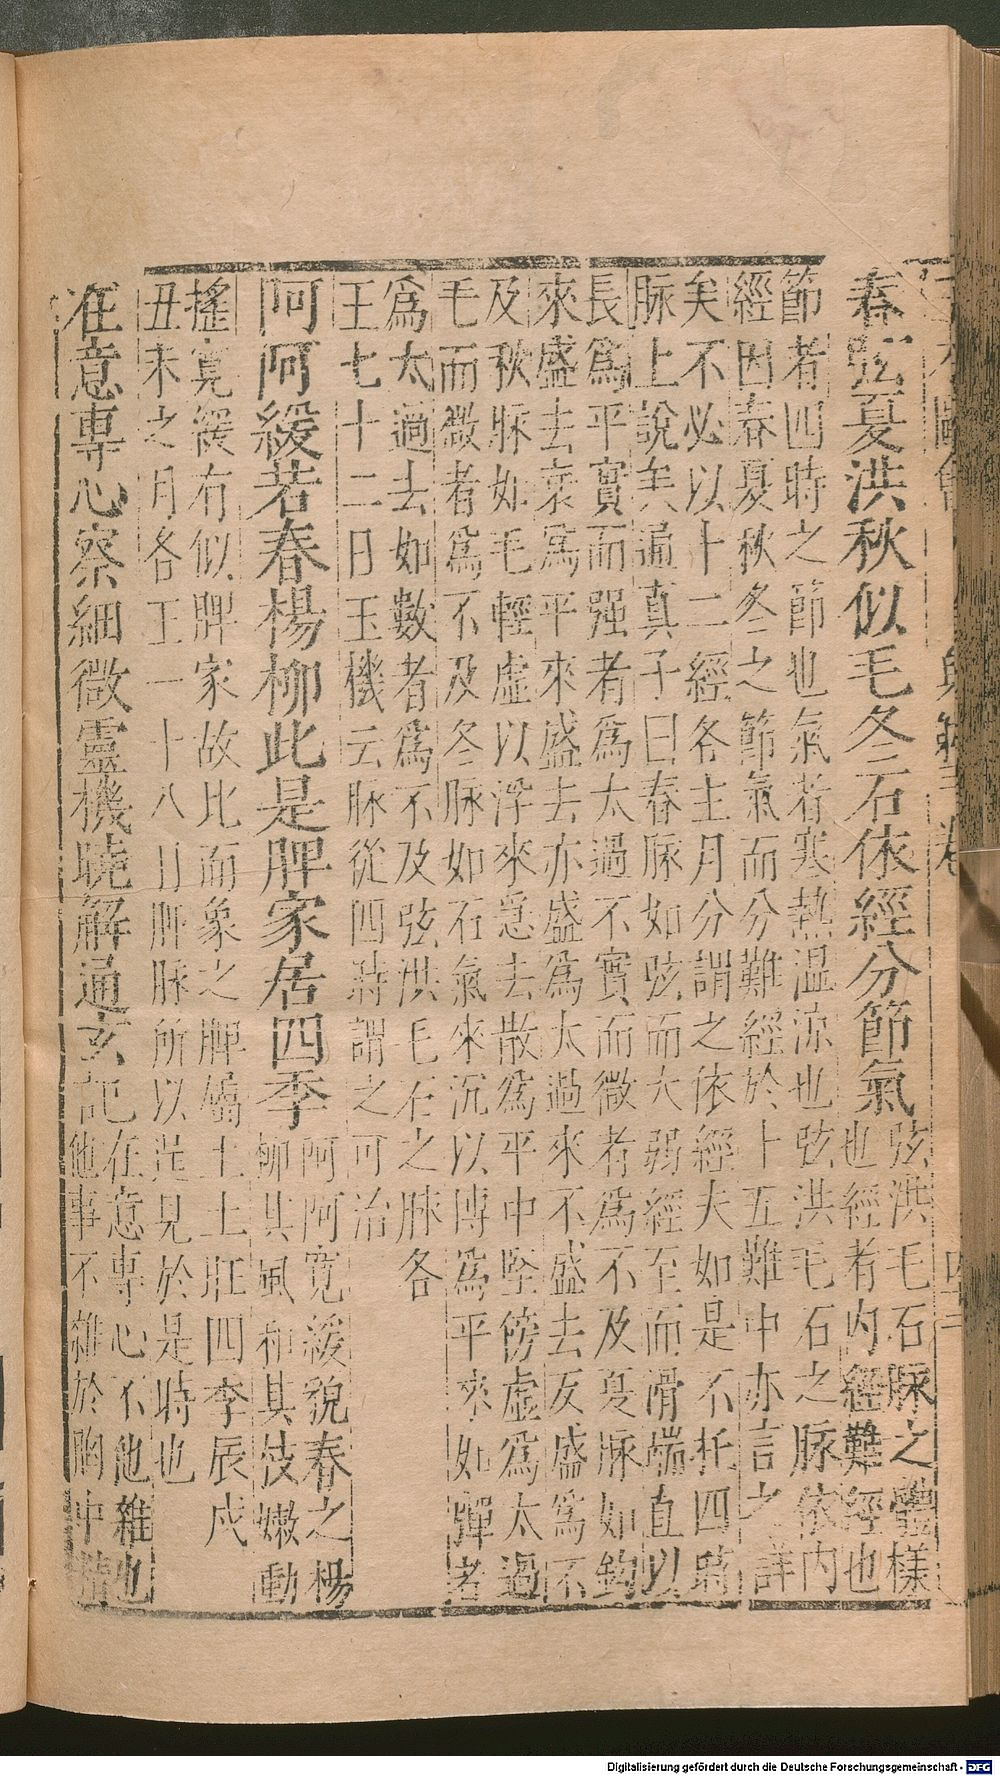 春弦夏洪秋似毛冬石依經分節氣
弦洪毛石脉之體樣
也經者內經難經也
節者四時之節也氣者寒熱溫凉也弦洪毛石之脉依內
經因春夏秋冬之節氣而分難經於十五難中亦言之詳
矣不必以十二經各主月分謂之依經夫如是不托四時
脉上說矣通真子曰春脉如弦而大弱經至而滑端直以
長爲平實而强者爲太過不實而微者爲不及夏脉如鈎
來盛去衰爲平來盛去亦盛爲太過來不盛去反盛爲不
及秋脉如毛輕虛以浮來急去散爲平中堅傍虛爲太過
毛而微者爲不及冬脉如石氣來沉以摶爲平來如彈者
爲太過去如數者爲不及弦洪毛石之脉各
王七十二日玉機云脉從四時謂之可治
阿阿緩若春楊柳此是脾家居四季
阿阿寬緩貌春之楊
柳其風和其枝嫩動
搖寬緩有似脾家故比而象之脾屬土土旺四季辰戌
丑未之月各王一十八日脾脉所以是見於是時也
在意專心察細微靈機曉解通玄記
在意專心不他雜也
他事不雜於胸中
Digitalisierung gefördert durch die Deutsche Forschungsgemeinschaft - DFG